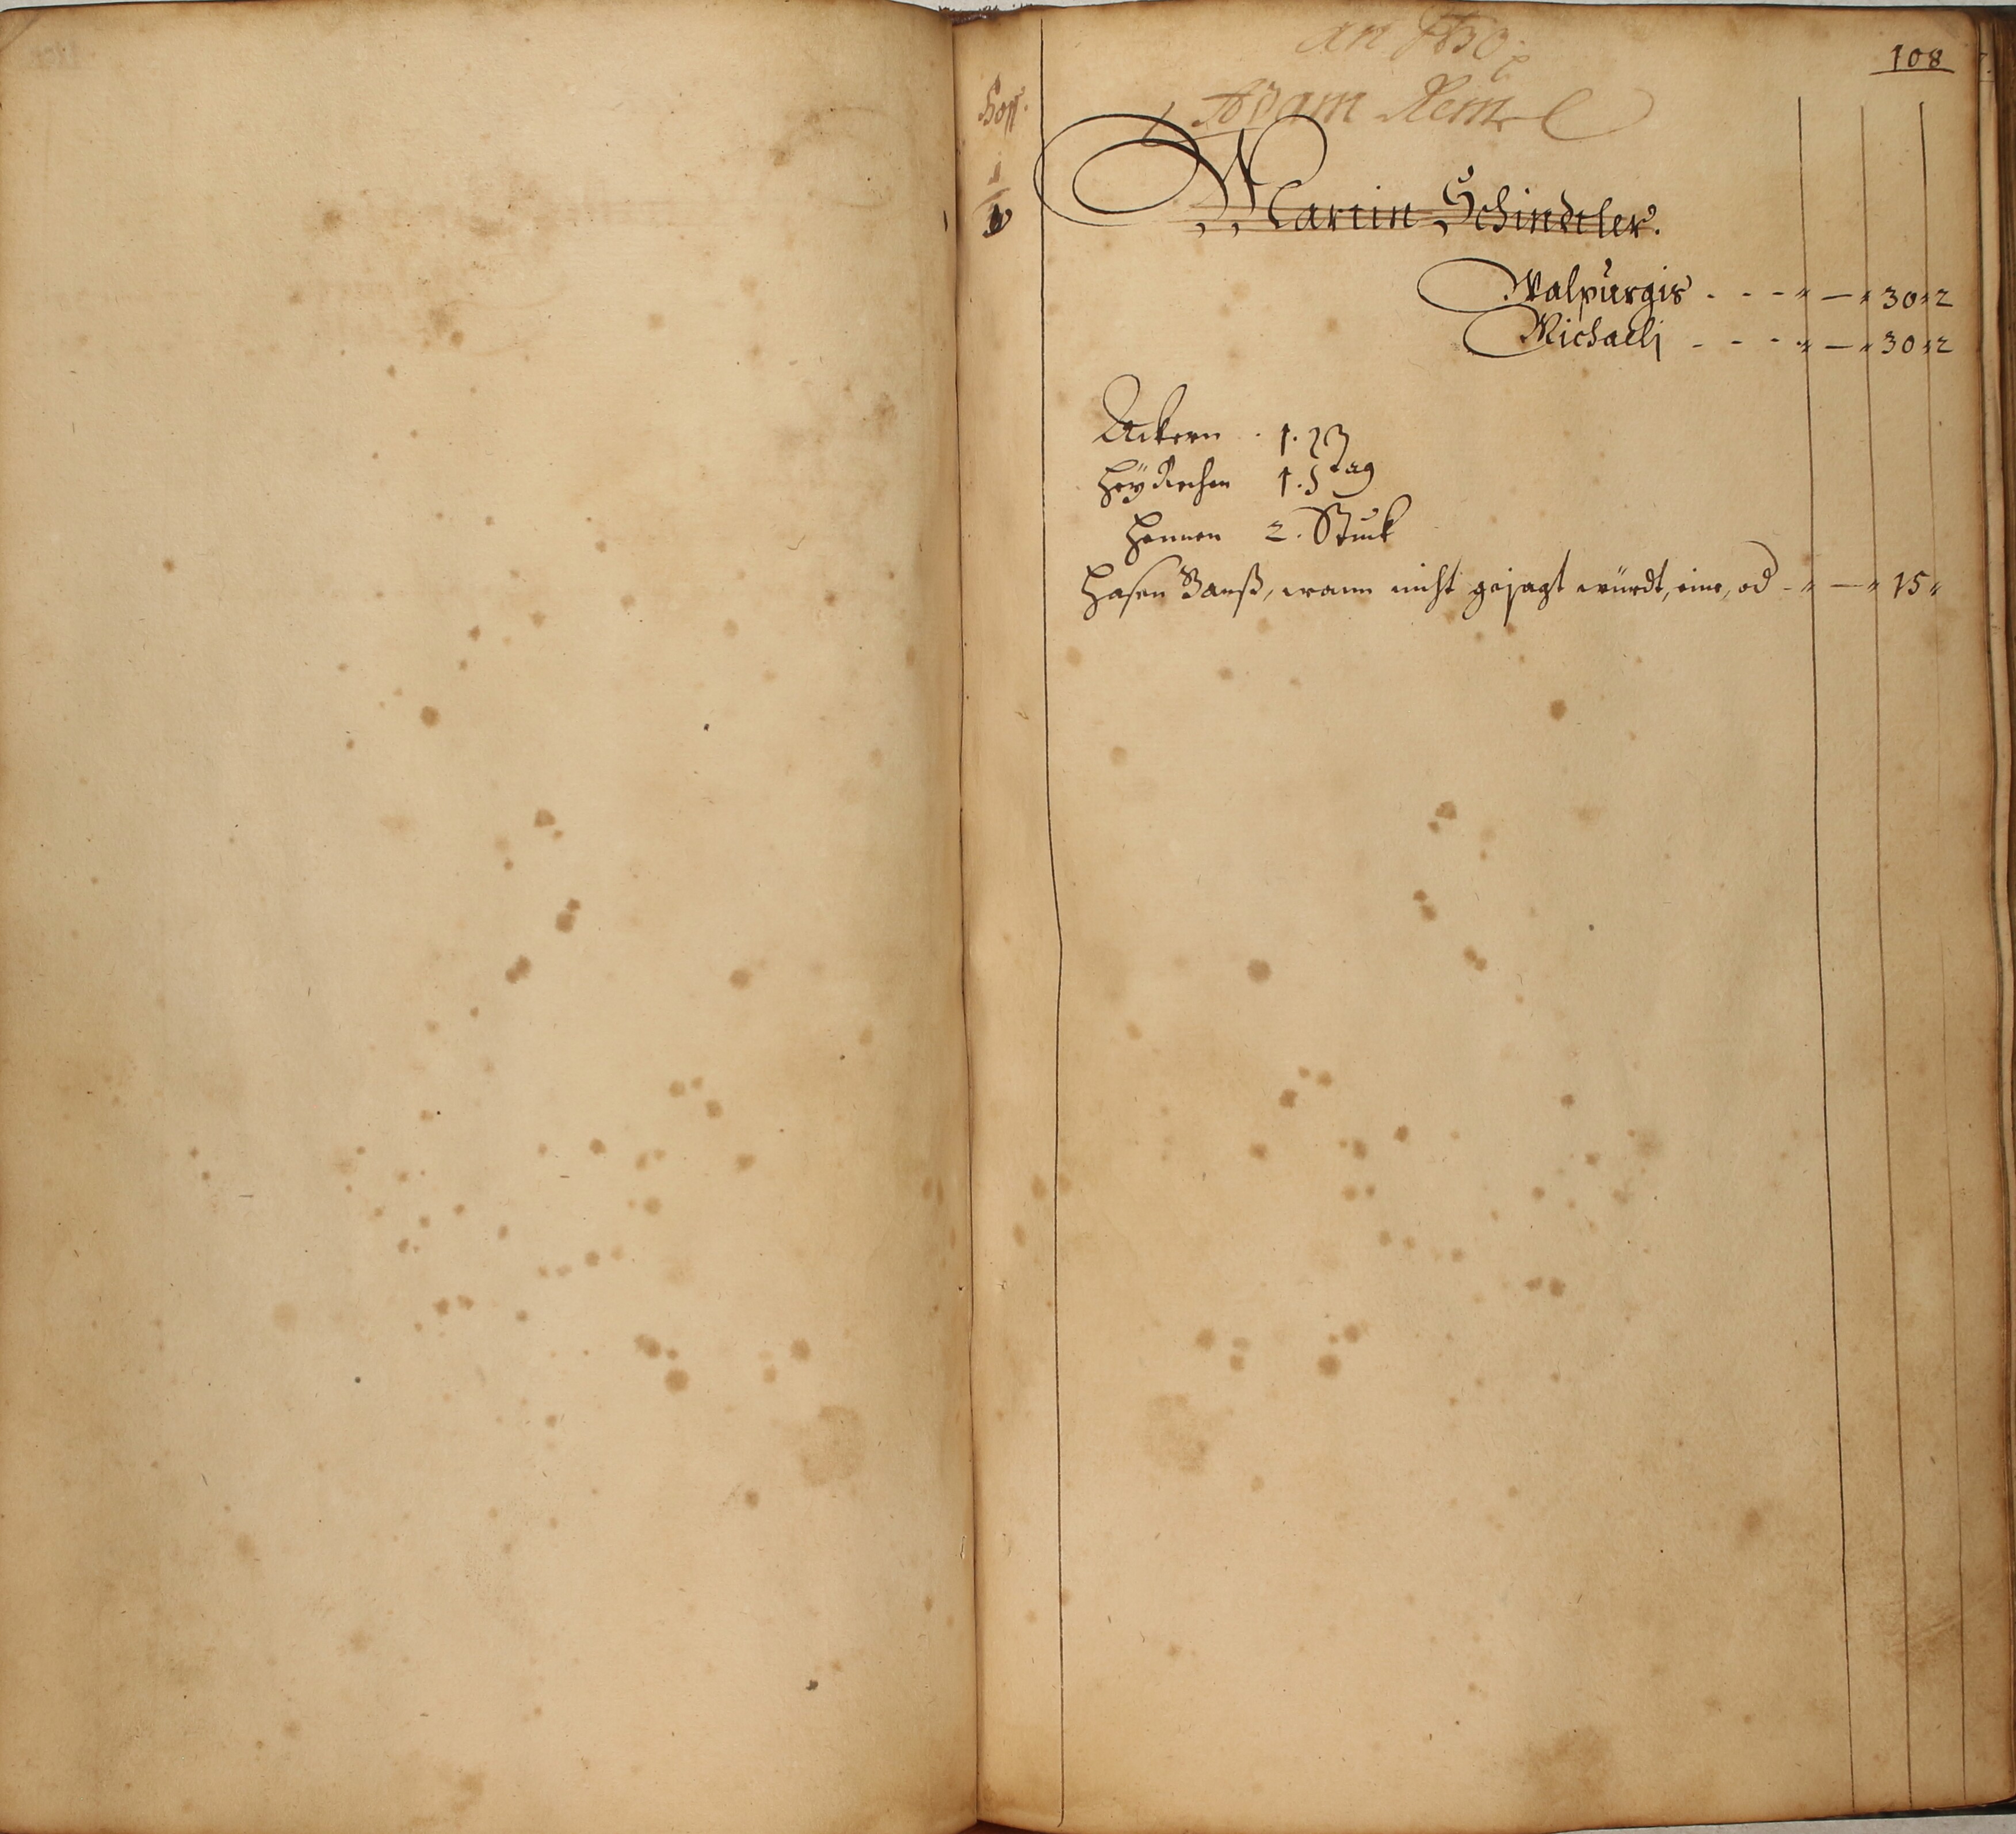 108
Hoff.
1
Adam
Martin Schindtler.
Walpurgis - - - " — " 30 " 2
Michaelj - - - " — " 30 " 2
Ackern . 1. } Tag
Heÿ Rechen 1. } 
Hennen 2. Stuck
Hasen Banß, wann nicht gejagt würdt, eine, od - " — " 15 "